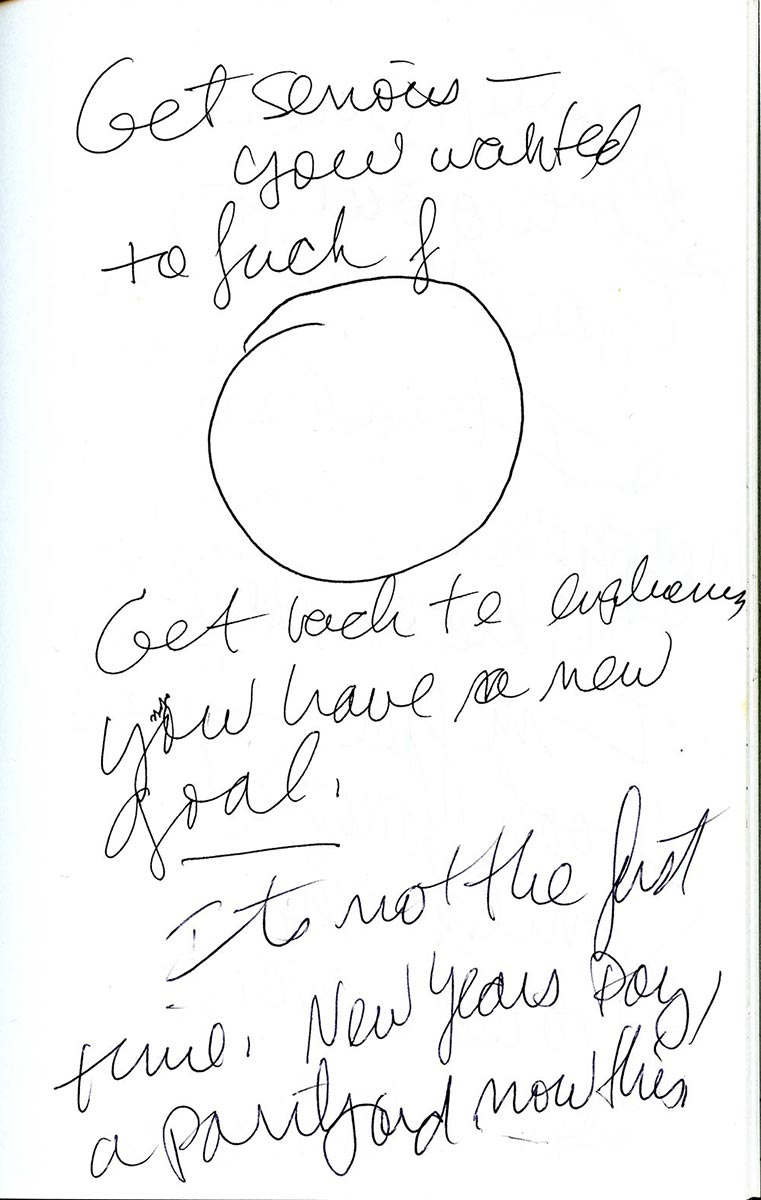 Get serious —
you wanted
to fuck f
Get back to
you have a new
goal.
It's not the first
time. New Years Day,
a party and now this